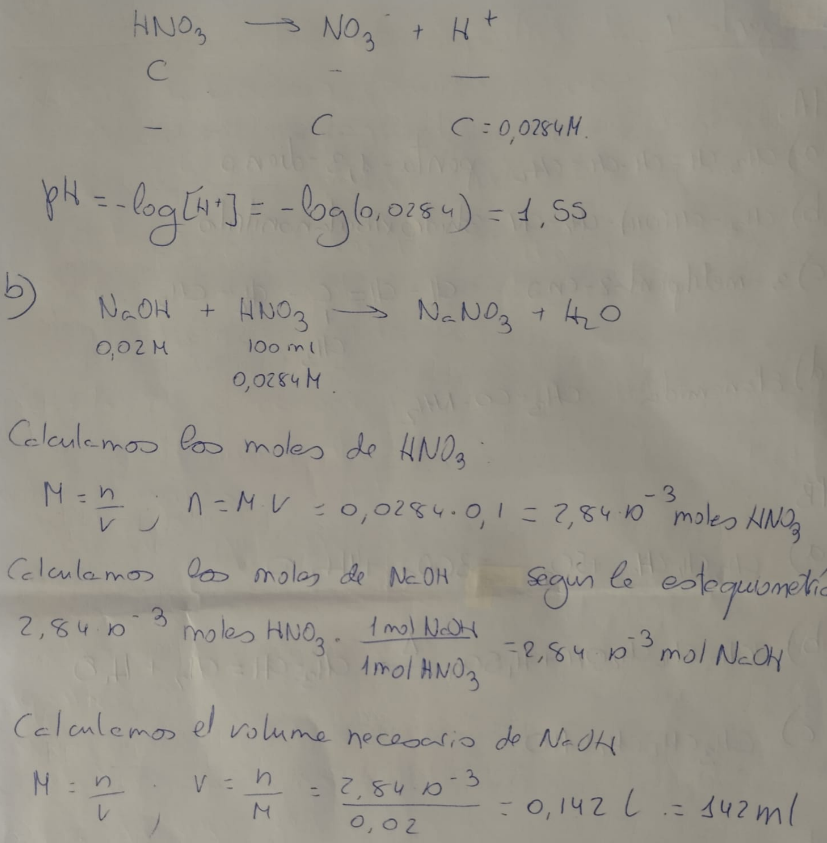 HNO₃ → NO₃⁻ + H⁺
C - —
- C C = 0,0284M.
pH = -log[H⁺] = -log(0,0284) = 1,55
b)
NaOH + HNO₃ → NaNO₃ + H₂O
0,02M 100 ml
0,0284M.
Calculamos los moles de HNO₃:
M = n/V ; n = M·V = 0,0284·0,1 = 2,84·10⁻³ moles HNO₃
Calculamos los moles de NaOH según la estequiometría
2,84·10⁻³ moles HNO₃ · 1 mol NaOH / 1 mol HNO₃ = 2,84·10⁻³ mol NaOH
Calculamos el volume necesario de NaOH
M = n/V ; V = n/M = 2,84·10⁻³ / 0,02 = 0,142 l. = 142 ml